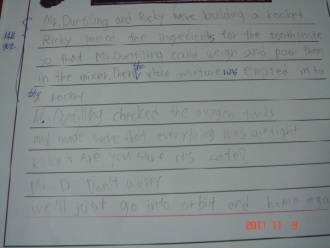 Mr. Dumbling and Ricky were building a rocket
Ricky passed the ingredients for the toothpaste
so that Mr. Dumbling could weigh and pour them
in the mixer. Then the whole mixture was emptied into
the rocket
M. Dumbling checked the oxygen tanks
my made sure that everything was airtight
Ricky: Are you sure it's safe?
Mr. D: Don't worry
we'll just go into orbit and home again
2011 11 9